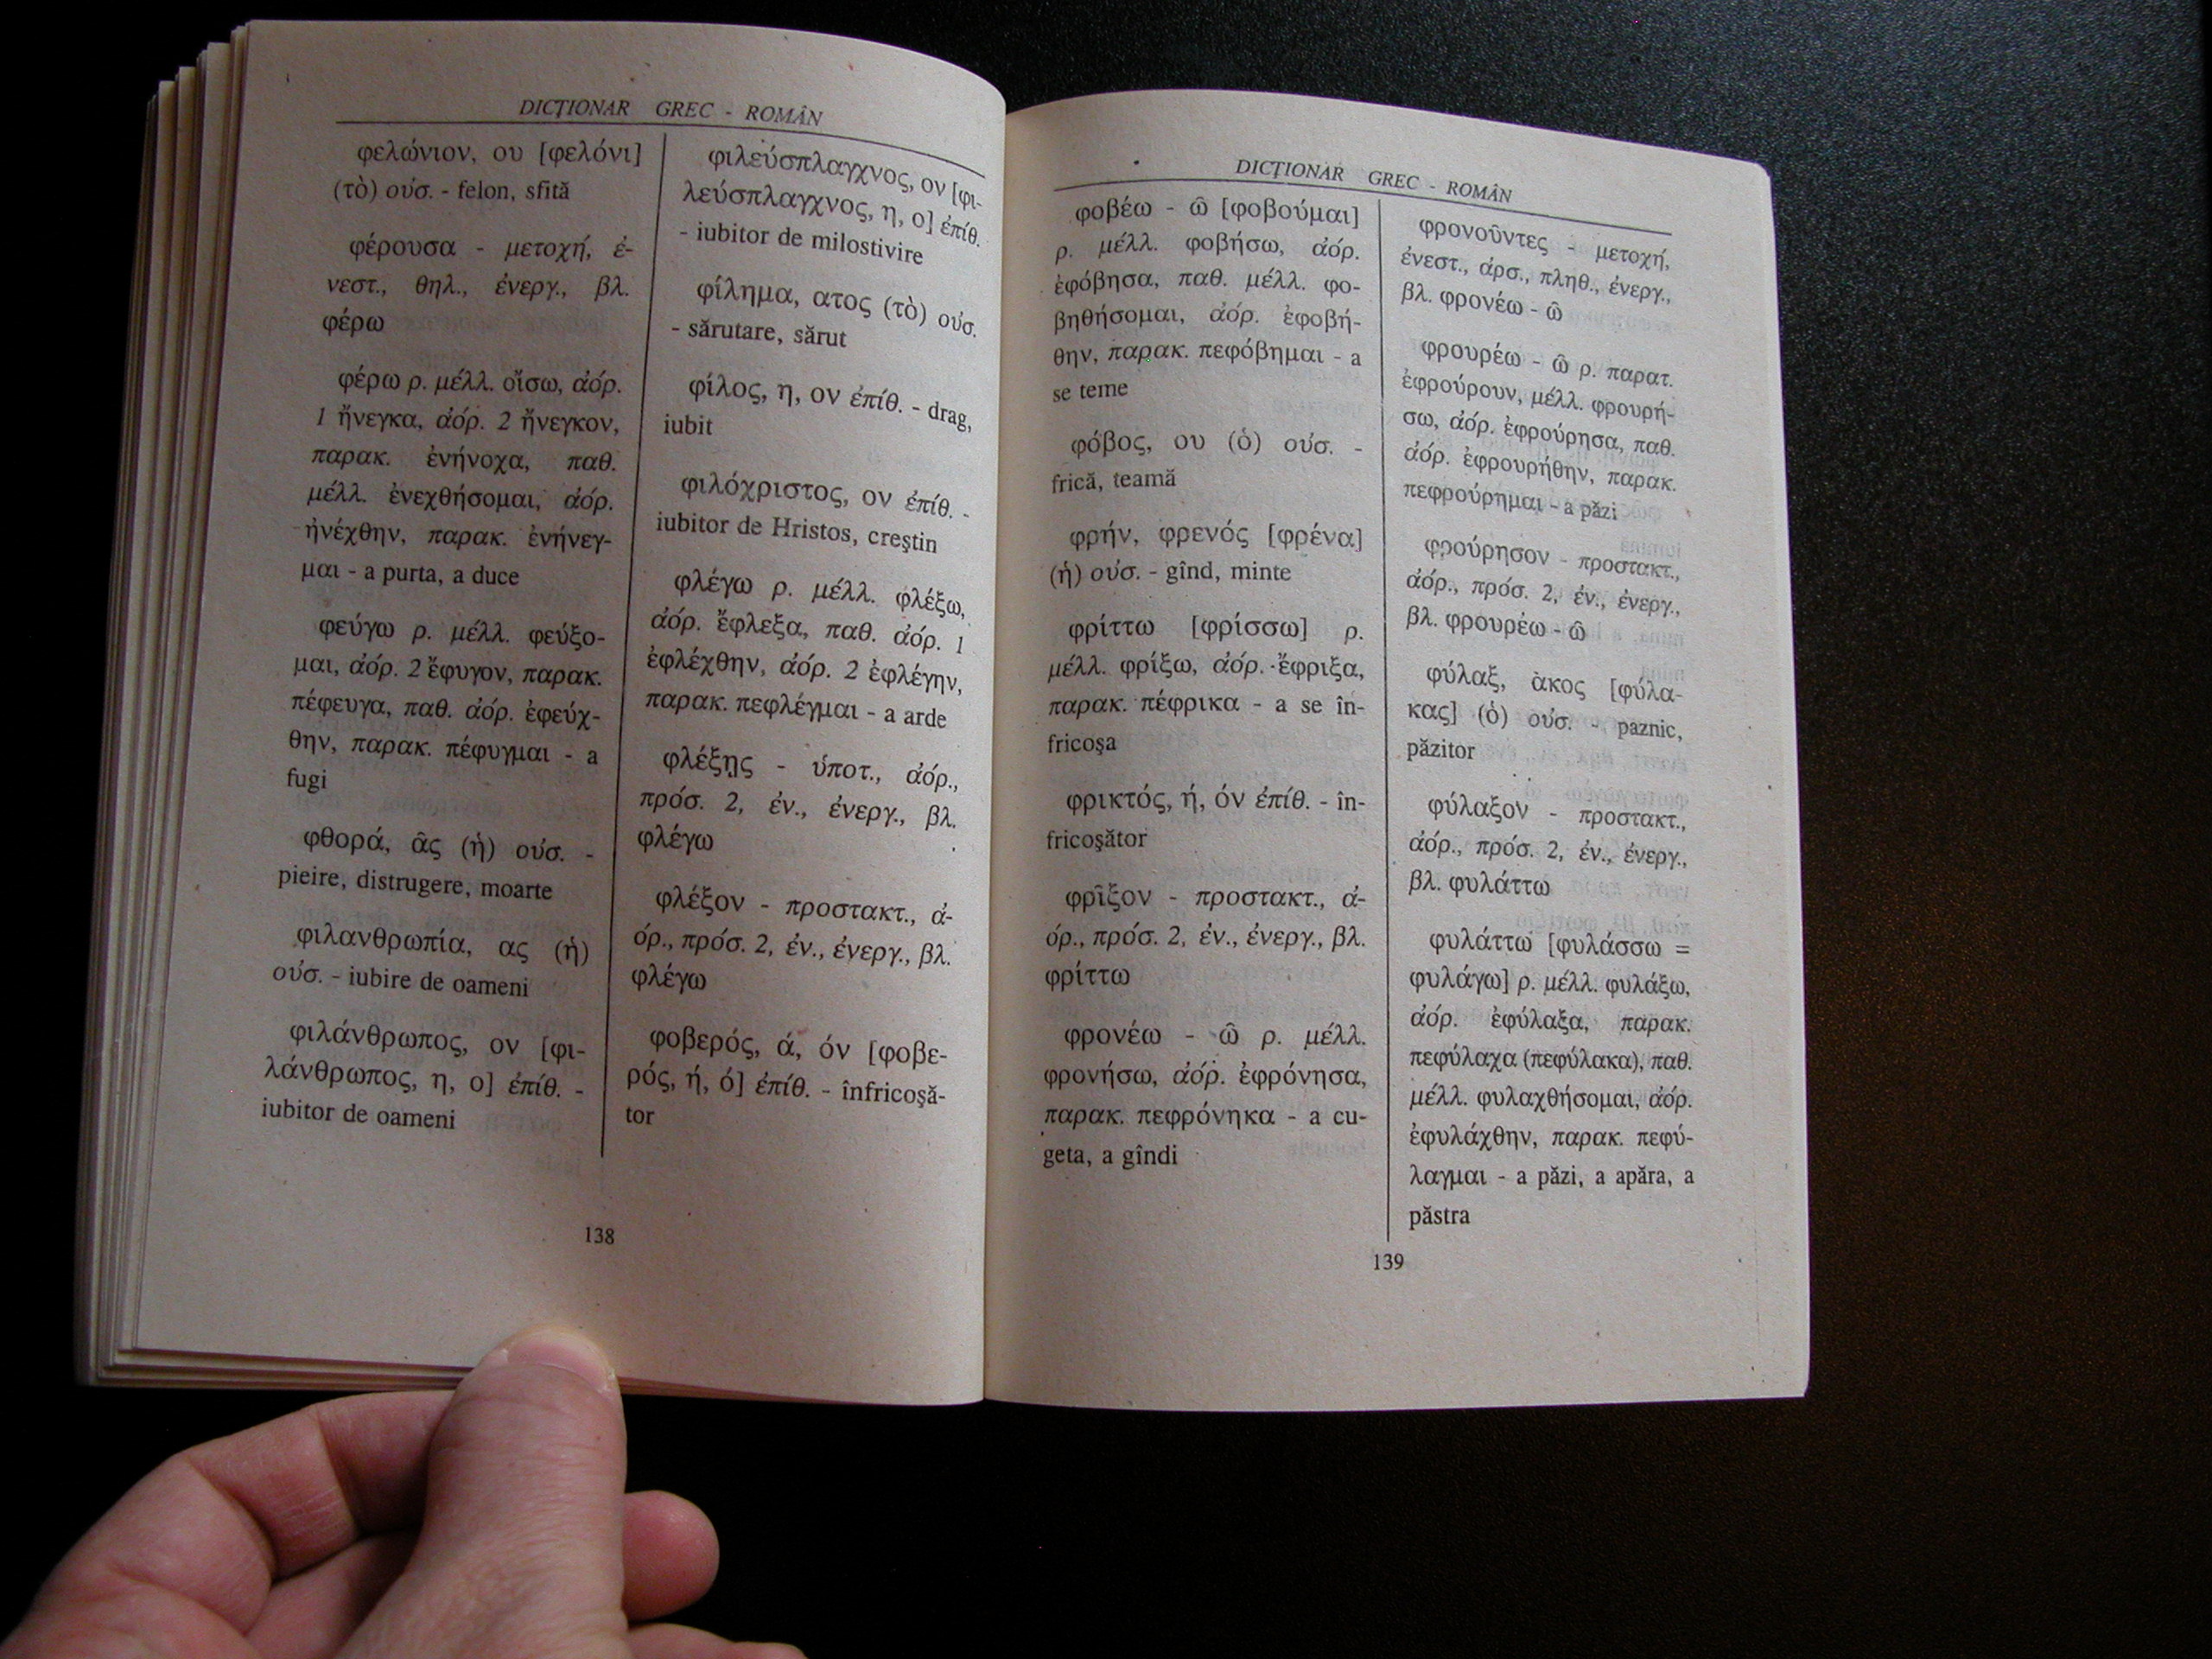 DICŢIONAR GREC - ROMÂN
φελώνιον, ου [φελόνι]
(τὸ) οὐσ. - felon, sfită
φέρουσα - μετοχή, ἐ-
νεστ., θηλ., ἐνεργ., βλ.
φέρω
φέρω ρ. μέλλ. οἴσω, ἀόρ.
1 ἤνεγκα, ἀόρ. 2 ἤνεγκον,
παρακ. ἐνήνοχα, παθ.
μέλλ. ἐνεχθήσομαι, ἀόρ.
ἠνέχθην, παρακ. ἐνήνεγ-
μαι - a purta, a duce
φεύγω ρ. μέλλ. φεύξο-
μαι, ἀόρ. 2 ἔφυγον, παρακ.
πέφευγα, παθ. ἀόρ. ἐφεύχ-
θην, παρακ. πέφυγμαι - a
fugi
φθορά, ᾶς (ἡ) οὐσ. -
pieire, distrugere, moarte
φιλανθρωπία, ας (ἡ)
οὐσ. - iubire de oameni
φιλάνθρωπος, ον [φι-
λάνθρωπος, η, ο] ἐπίθ. -
iubitor de oameni
φιλεύσπλαγχνος, ον [φι-
λεύσπλαγχνος, η, ο] ἐπίθ.
- iubitor de milostivire
φίλημα, ατος (τὸ) οὐσ.
- sărutare, sărut
φίλος, η, ον ἐπίθ. - drag,
iubit
φιλόχριστος, ον ἐπίθ. -
iubitor de Hristos, creştin
φλέγω ρ. μέλλ. φλέξω,
ἀόρ. ἔφλεξα, παθ. ἀόρ. 1
ἐφλέχθην, ἀόρ. 2 ἐφλέγην,
παρακ. πεφλέγμαι - a arde
φλέξῃς - ὑποτ., ἀόρ.,
πρόσ. 2, ἐν., ἐνεργ., βλ.
φλέγω
φλέξον - προστακτ., ἀ-
όρ., πρόσ. 2, ἐν., ἐνεργ., βλ.
φλέγω
φοβερός, ά, όν [φοβε-
ρός, ή, ό] ἐπίθ. - înfricoşă-
tor
138
DICŢIONAR GREC - ROMÂN
φοβέω - ῶ [φοβούμαι]
ρ. μέλλ. φοβήσω, ἀόρ.
ἐφόβησα, παθ. μέλλ. φο-
βηθήσομαι, ἀόρ. ἐφοβή-
θην, παρακ. πεφόβημαι - a
se teme
φόβος, ου (ὁ) οὐσ. -
frică, teamă
φρήν, φρενός [φρένα]
(ἡ) οὐσ. - gînd, minte
φρίττω [φρίσσω] ρ.
μέλλ. φρίξω, ἀόρ. ἔφριξα,
παρακ. πέφρικα - a se în-
fricoşa
φρικτός, ή, όν ἐπίθ. - în-
fricoşător
φρῖξον - προστακτ., ἀ-
όρ., πρόσ. 2, ἐν., ἐνεργ., βλ.
φρίττω
φρονέω - ῶ ρ. μέλλ.
φρονήσω, ἀόρ. ἐφρόνησα,
παρακ. πεφρόνηκα - a cu-
geta, a gîndi
φρονοῦντες - μετοχή,
ἐνεστ., ἀρσ., πληθ., ἐνεργ.,
βλ. φρονέω - ῶ
φρουρέω - ῶ ρ. παρατ.
ἐφρούρουν, μέλλ. φρουρή-
σω, ἀόρ. ἐφρούρησα, παθ.
ἀόρ. ἐφρουρήθην, παρακ.
πεφρούρημαι - a păzi
φρούρησον - προστακτ.,
ἀόρ., πρόσ. 2, ἐν., ἐνεργ.,
βλ. φρουρέω - ῶ
φύλαξ, ὰκος [φύλα-
κας] (ὁ) οὐσ. - paznic,
păzitor
φύλαξον - προστακτ.,
ἀόρ., πρόσ. 2, ἐν., ἐνεργ.,
βλ. φυλάττω
φυλάττω [φυλάσσω =
φυλάγω] ρ. μέλλ. φυλάξω,
ἀόρ. ἐφύλαξα, παρακ.
πεφύλαχα (πεφύλακα), παθ.
μέλλ. φυλαχθήσομαι, ἀόρ.
ἐφυλάχθην, παρακ. πεφύ-
λαγμαι - a păzi, a apăra, a
păstra
139